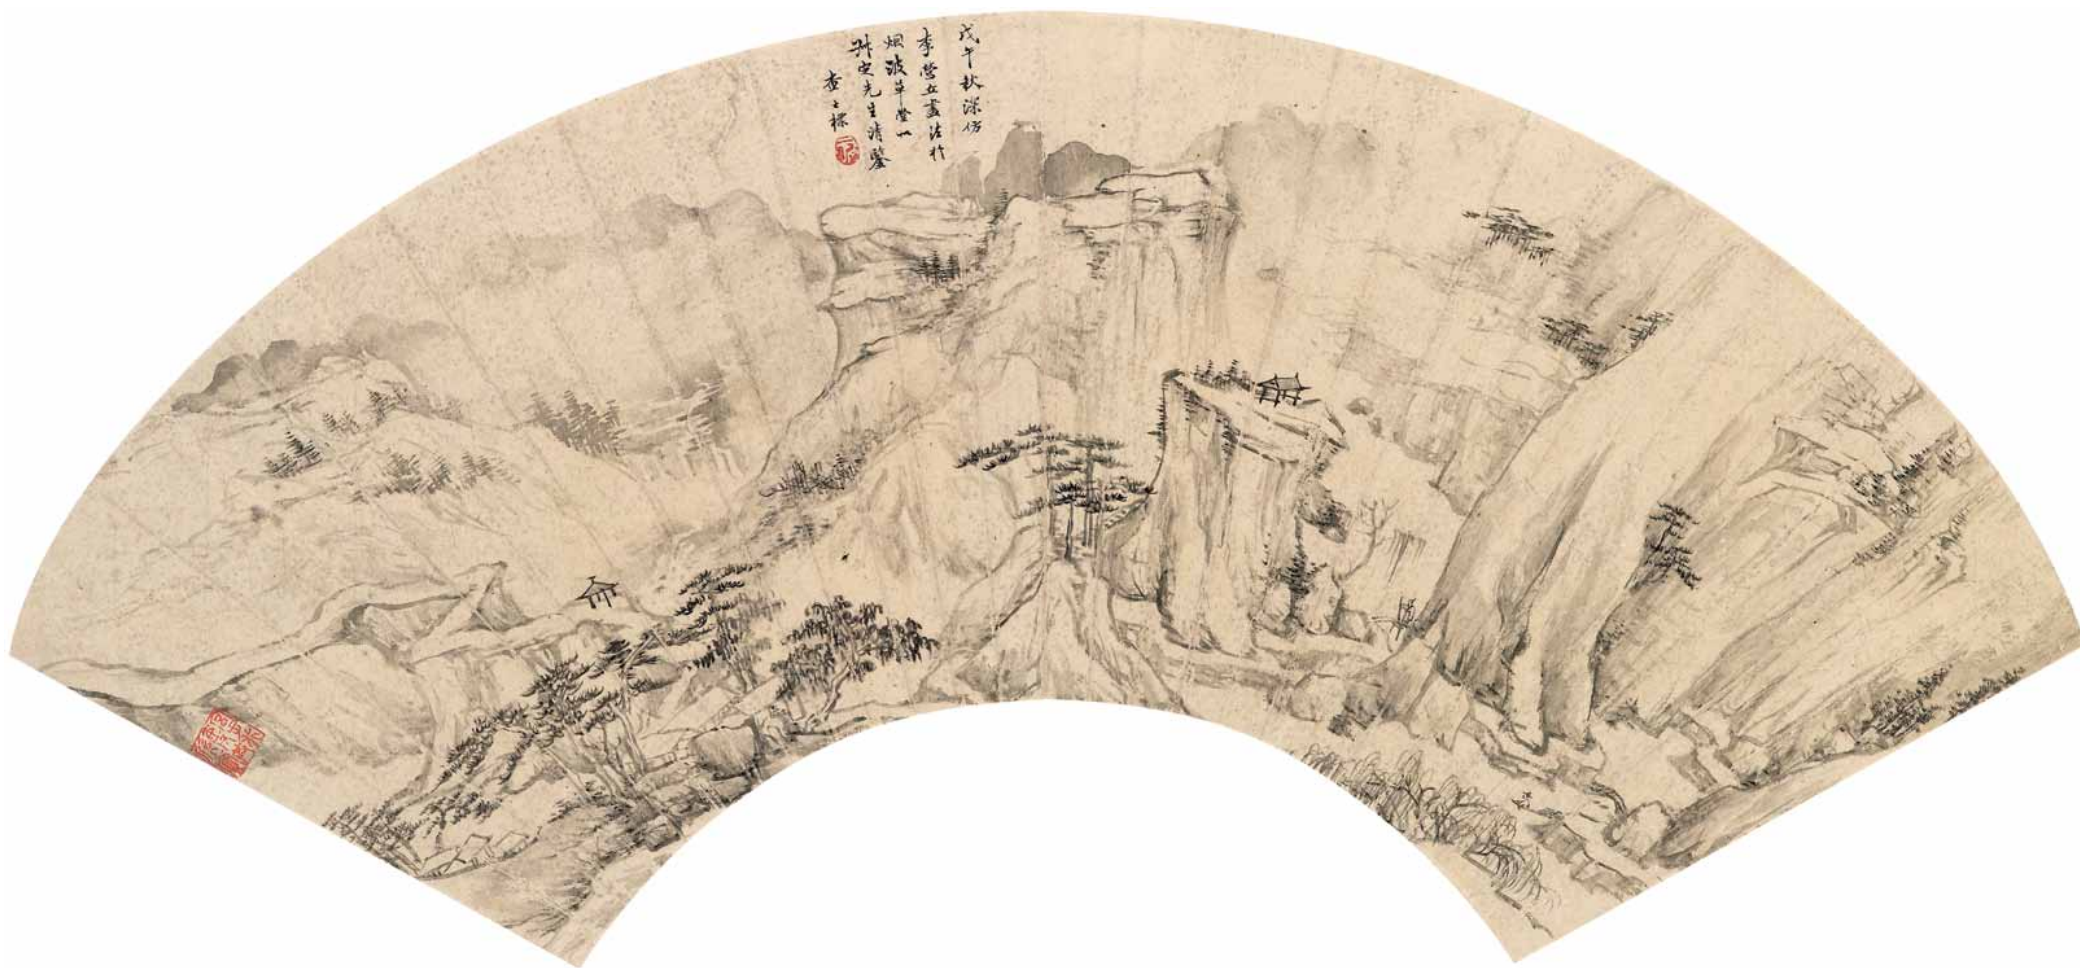 戊午秋深仿
李營丘畫法於
烟波草堂以
先生清鑒
查士標